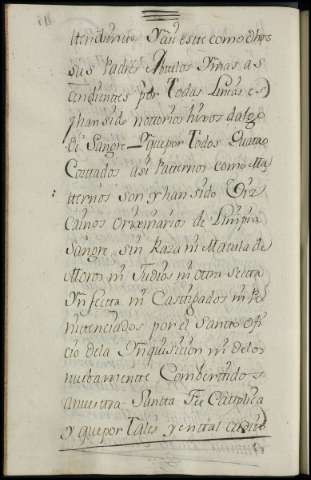 sus Padres Abuelos Ymas as
cendientes por Todas Lineas
y han sido nottorios hixos dalgo
de Sangre = Yque por Todos Quatro
Costtados asi Patternos como Ma
tternos son y han sido Criz
ttianos orixinarios de Limpia
Sangre, sin Raza ni Macula de
Moros ni Judios ni otra Sectta
Infectta ni Casttigados ni Pe
nittenciados por el Santto Ofi
cio dela Ynquisicion ni delos
nuebamentte Combertidos
a nuestra Santta Feé Cattolica
y que por Tales y en tal